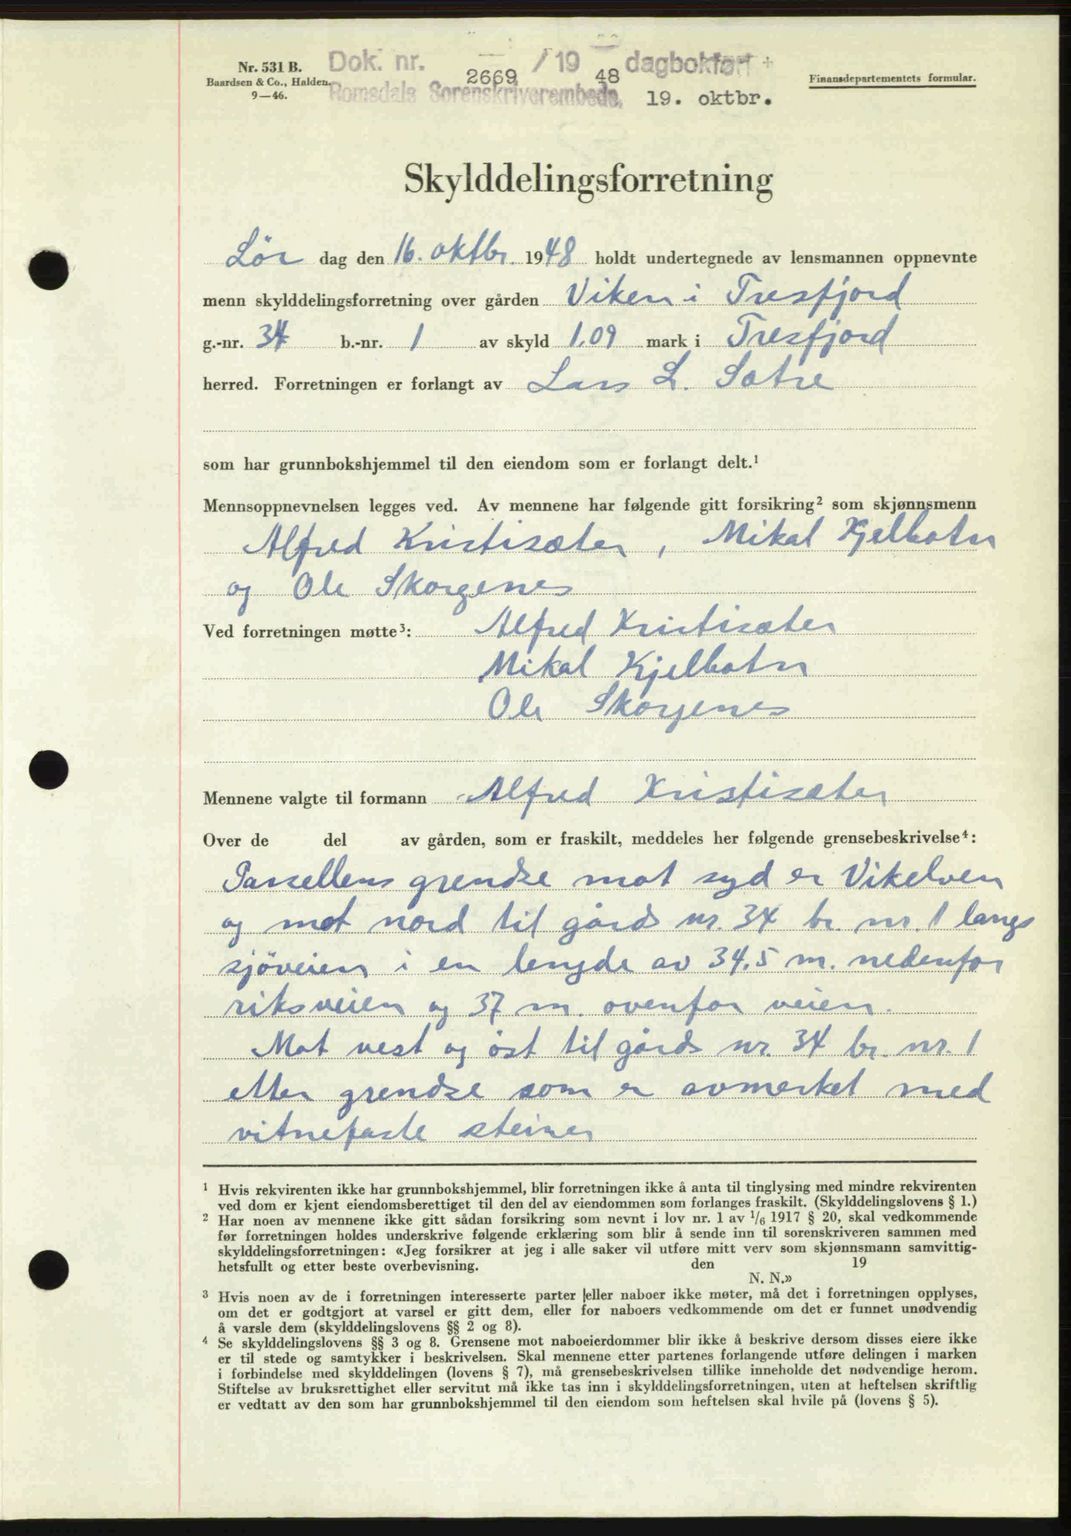 Nr. 531 B.
Baardsen & Co., Halden.
9—46.
Dok. nr. 2669 / 19 48 dagbokført
Romsdals Sorenskriverembede, 19. oktbr.
Finansdepartementets formular.
Skylddelingsforretning
Lör dag den 16. oktbr. 1948 holdt undertegnede av lensmannen oppnevnte
menn skylddelingsforretning over gården Viken i Tresfjord
g.-nr. 34 b.-nr. 1 av skyld 1.09 mark i Tresfjord
herred. Forretningen er forlangt av Lars L. Sætre
som har grunnbokshjemmel til den eiendom som er forlangt delt.¹
Mennsoppnevnelsen legges ved. Av mennene har følgende gitt forsikring² som skjønnsmenn
Alfred Kristisæter, Mikal Kjelbotn
og Ole Skorgenes
Ved forretningen møtte³: Alfred Kristisæter
Mikal Kjelbotn
Ole Skorgenes
Mennene valgte til formann Alfred Kristisæter
Over de del av gården, som er fraskilt, meddeles her følgende grensebeskrivelse⁴:
Parsellens grendse mot syd er Vikelven
og mot nord til gårds nr. 34 br. nr. 1 langs
sjöveien i en lengde av 34.5 m. nedenfor
riksveien og 37 m. ovenfor veien.
Mot vest og öst til gårds nr. 34 br. nr. 1
etter grendse som er avmerket med
vitnefaste steiner
¹ Hvis rekvirenten ikke har grunnbokshjemmel, blir forretningen ikke å anta til tinglysing med mindre rekvirenten
ved dom er kjent eiendomsberettiget til den del av eiendommen som forlanges fraskilt. (Skylddelingslovens § 1.)
² Har noen av mennene ikke gitt sådan forsikring som nevnt i lov nr. 1 av 1/6 1917 § 20, skal vedkommende
før forretningen holdes underskrive følgende erklæring som blir å sende inn til sorenskriveren sammen med
skylddelingsforretningen: «Jeg forsikrer at jeg i alle saker vil utføre mitt verv som skjønnsmann samvittig-
hetsfullt og etter beste overbevisning. den 19
N. N.»
³ Hvis noen av de i forretningen interesserte parter eller naboer ikke møter, må det i forretningen opplyses,
om det er godtgjort at varsel er gitt dem, eller for naboers vedkommende om det er funnet unødvendig
å varsle dem (skylddelingslovens §§ 2 og 8).
⁴ Se skylddelingslovens §§ 3 og 8. Grensene mot naboeierdommer blir ikke å beskrive dersom disses eiere ikke
er til stede og samtykker i beskrivelsen. Skal mennene etter partenes forlangende utføre delingen i marken
i forbindelse med skylddelingen (lovens § 7), må grensebeskrivelsen tillike inneholde det nødvendige herom.
Stiftelse av bruksrettighet eller servitut må ikke tas inn i skylddelingsforretningen, uten at heftelsen skriftlig
er vedtatt av den som har grunnbokshjemmel til den eiendom som heftelsen skal hvile på (lovens § 5).